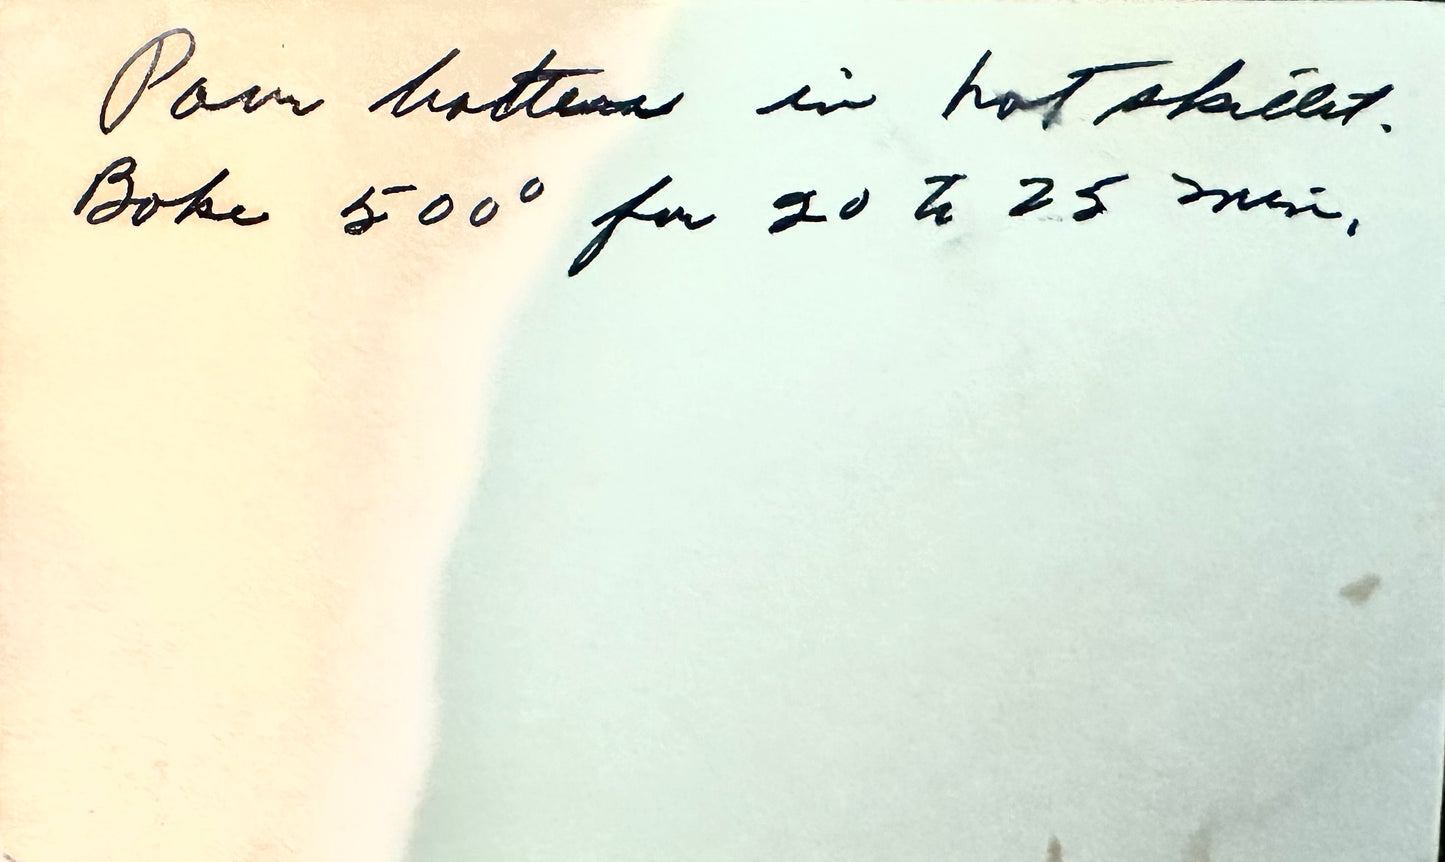 Pour batter in hot skillet.
Bake 500° for 20 to 25 min.